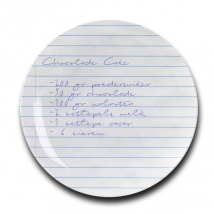 Chocolade Cake
-200 gr poedersuiker
-90 gr chocolade
-100 gr walnoten
-2 eetlepels melk
-1 eetlepel cacao
- 6 eieren